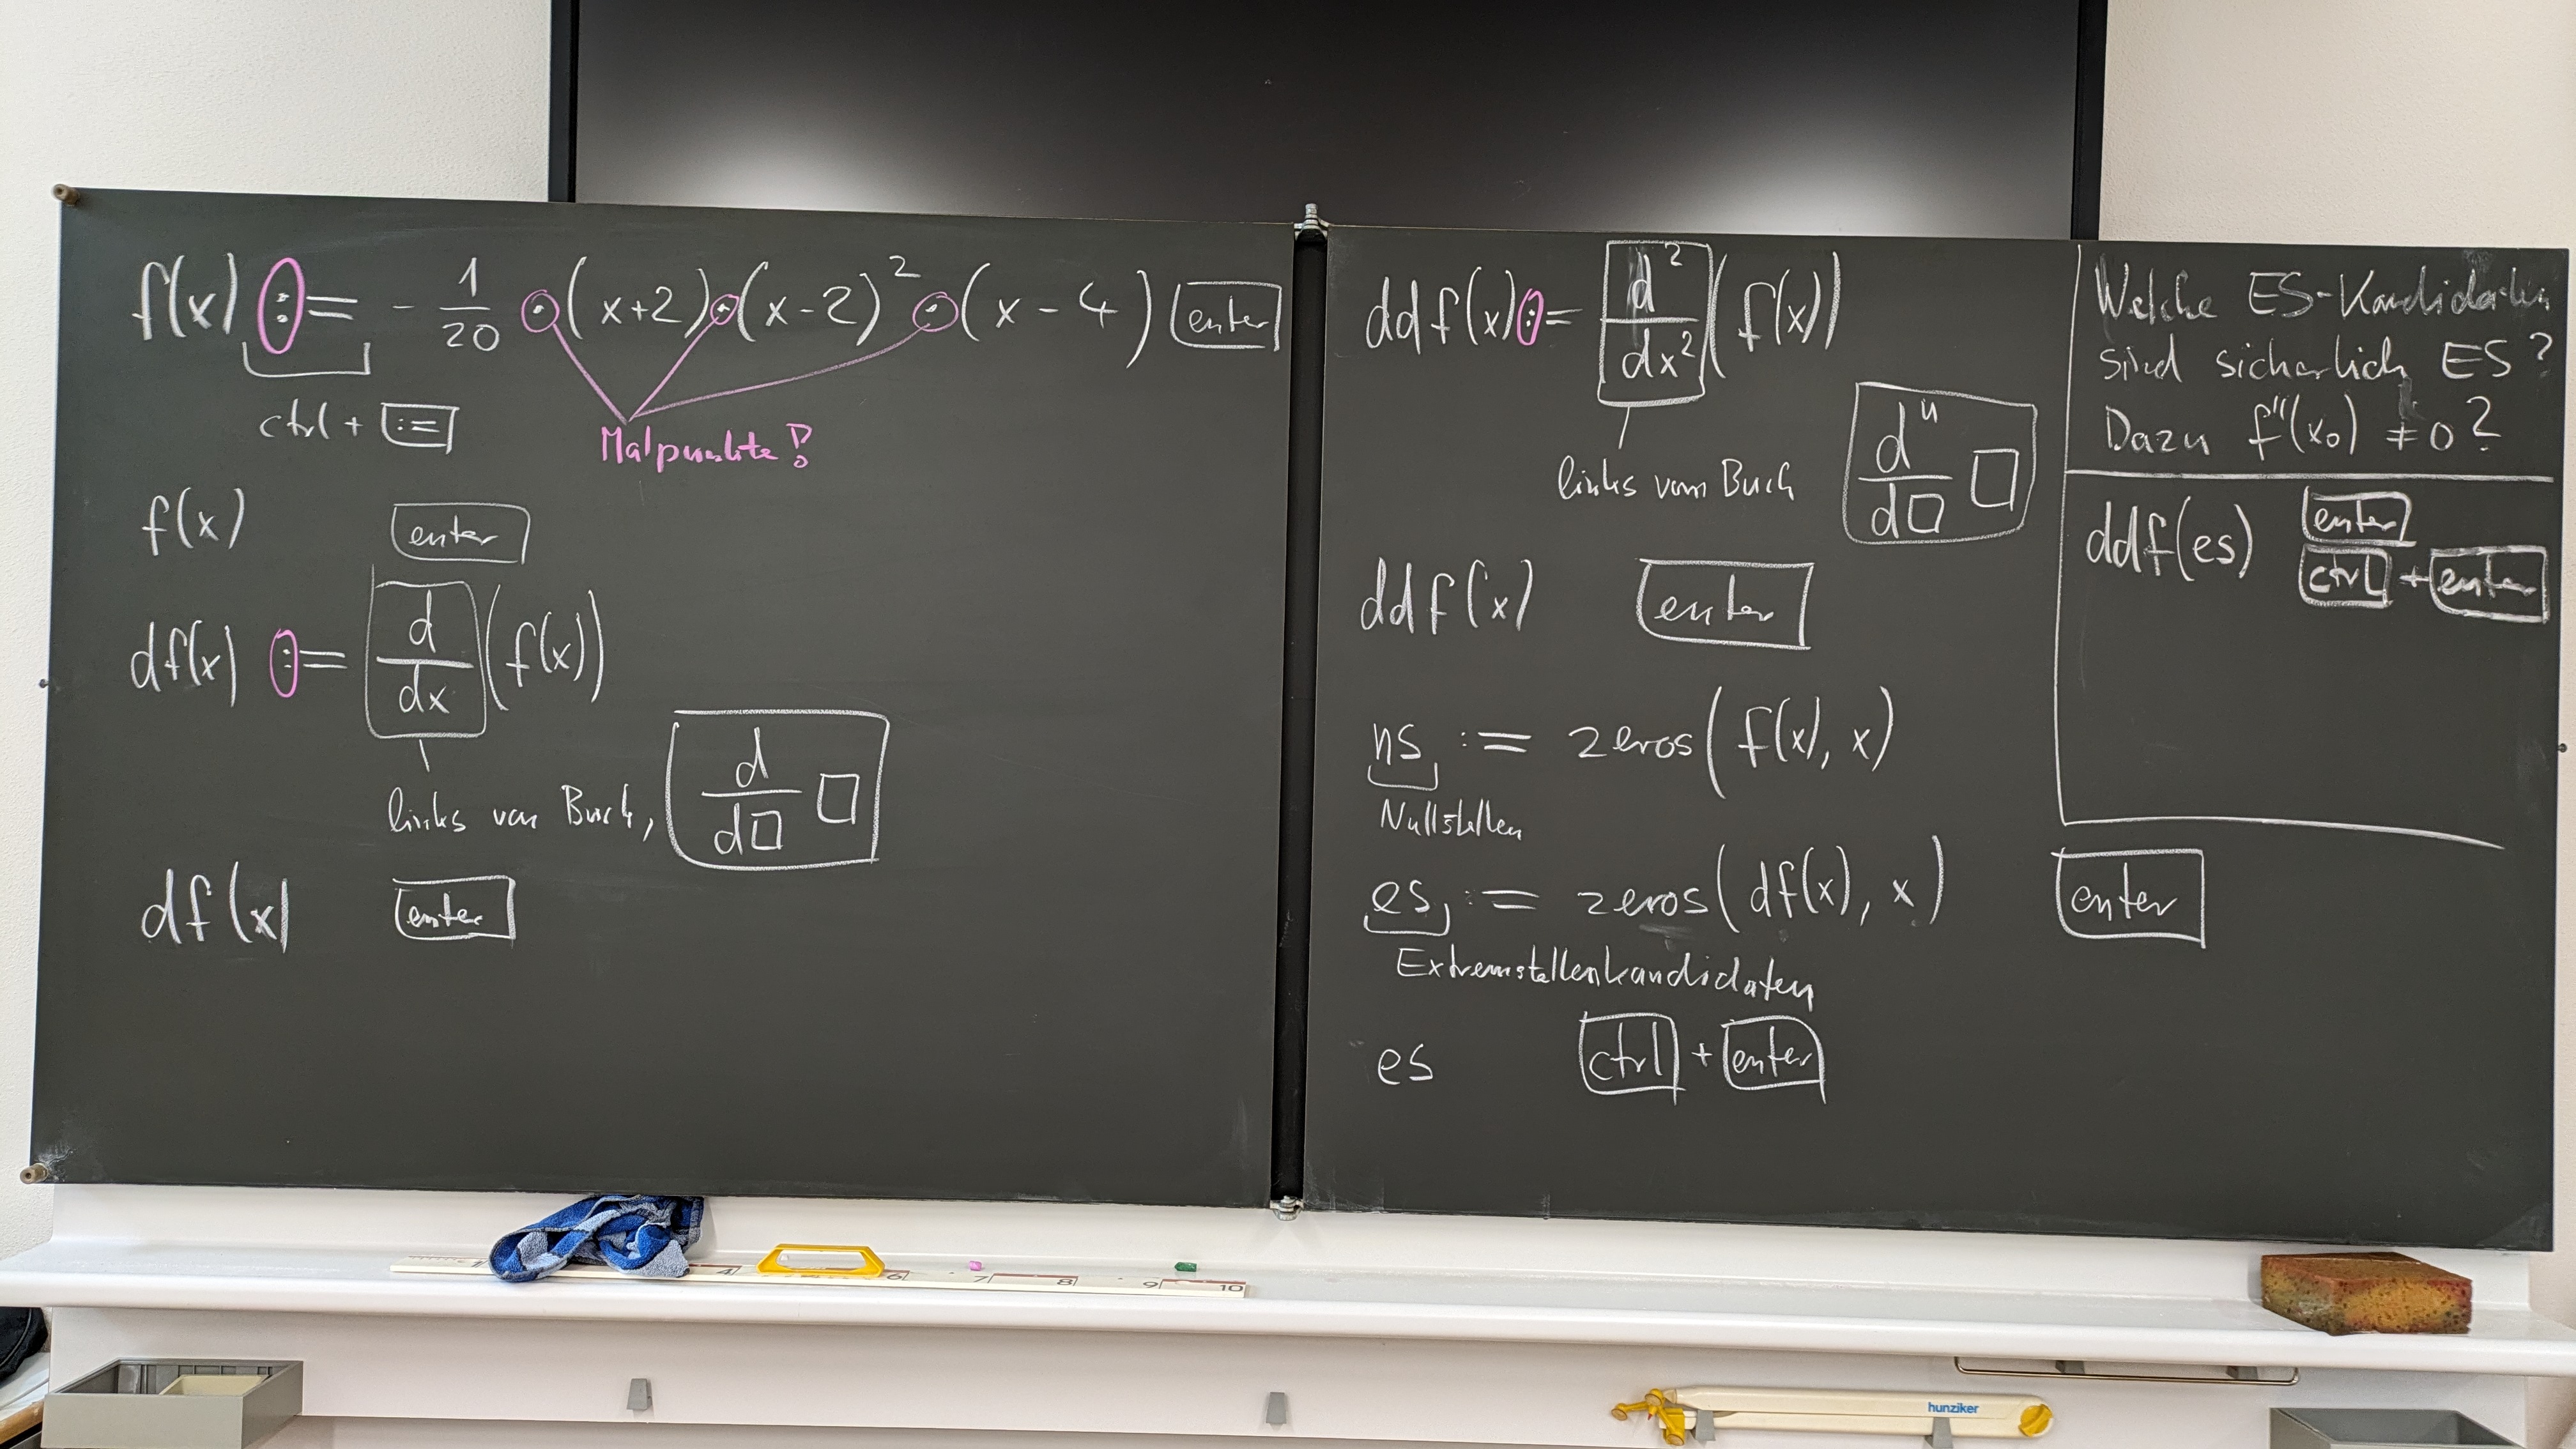 f(x) := - 1/20 · (x+2) · (x-2)² · (x-4) enter
ctrl + :=
Malpunkte!
f(x) enter
df(x) := d/dx (f(x))
links vom Buch, d/d□ □
df(x) enter
ddf(x) := d²/dx² (f(x))
links vom Buch dⁿ/d□ □
ddf(x) enter
ns := zeros(f(x), x)
Nullstellen
es := zeros(df(x), x) enter
Extremstellenkandidaten
es ctrl + enter
Welche ES-Kandidaten
sind sicherlich ES?
Dazu f''(x₀) ≠ 0?
ddf(es) enter
ctrl + enter
4 6 7 8 9 10
hunziker